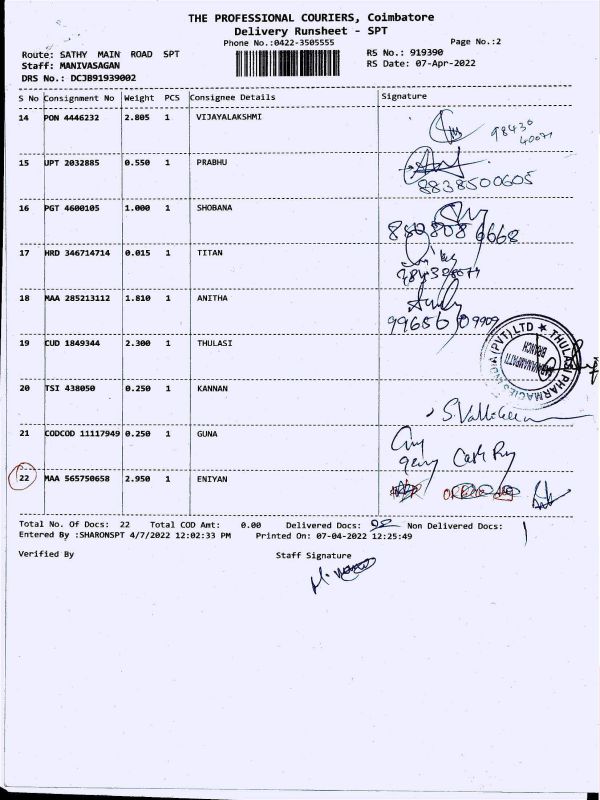 THE PROFESSIONAL COURIERS, Coimbatore
Delivery Runsheet - SPT
Phone No.:0422-3505555
Page No.:2
Route: SATHY MAIN ROAD SPT
RS No.: 919390
Staff: MANIVASAGAN
RS Date: 07-Apr-2022
DRS No.: DCJB91939002
S No Consignment No Weight PCS Consignee Details Signature
14 PON 4446232 2.805 1 VIJAYALAKSHMI
98430
40071
15 UPT 2032885 0.550 1 PRABHU
8838500605
16 PGT 4600105 1.000 1 SHOBANA
17 HRD 346714714 0.015 1 TITAN
18 MAA 285213112 1.810 1 ANITHA
19 CUD 1849344 2.300 1 THULASI
THULASI PHARMACIES INDIA (PVT) LTD ★
BRANCH
20 TSI 438050 0.250 1 KANNAN
21 CODCOD 11117949 0.250 1 GUNA
22 MAA 565750658 2.950 1 ENIYAN
Total No. Of Docs: 22 Total COD Amt: 0.00 Delivered Docs: Non Delivered Docs:
Entered By :SHARONSPT 4/7/2022 12:02:33 PM Printed On: 07-04-2022 12:25:49
Verified By Staff Signature